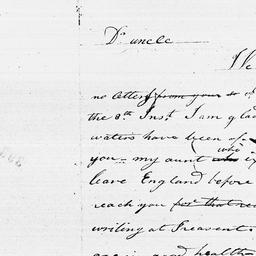 Dr uncle
no letters from your so of
the 8th Inst I am glad
waters have been of
who
you - my aunt
leave England before
reach you for that rea
writing at
good health